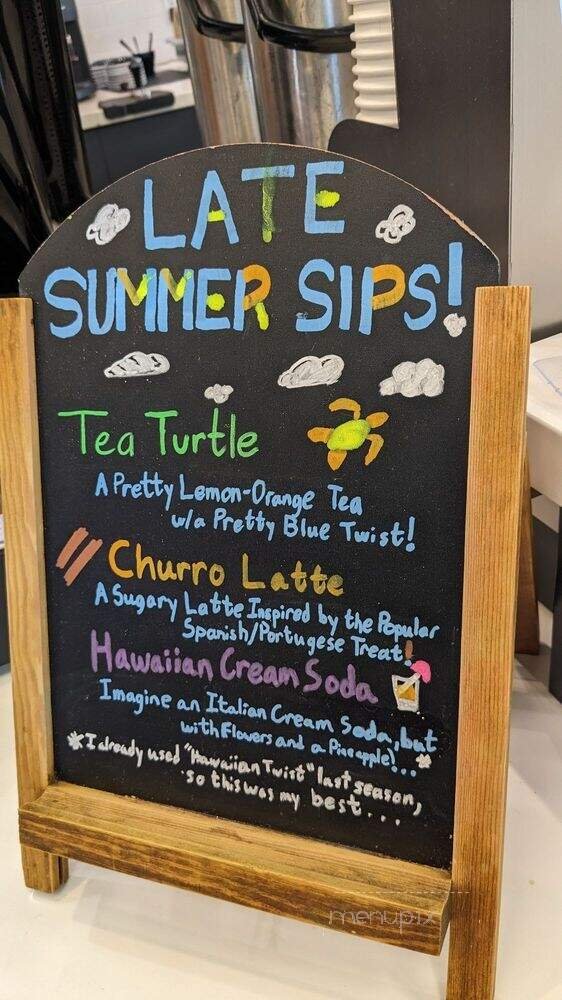 LATE
SUMMER SIPS!
Tea Turtle
A Pretty Lemon-Orange Tea
w/a Pretty Blue Twist!
Churro Latte
A Sugary Latte Inspired by the Popular
Spanish/Portugese Treat!
Hawaiian Cream Soda
Imagine an Italian Cream Soda, but
with Flowers and a Pineapple)...*
*I already used "Hawaiian Twist" last season,
so this was my best...
menupix